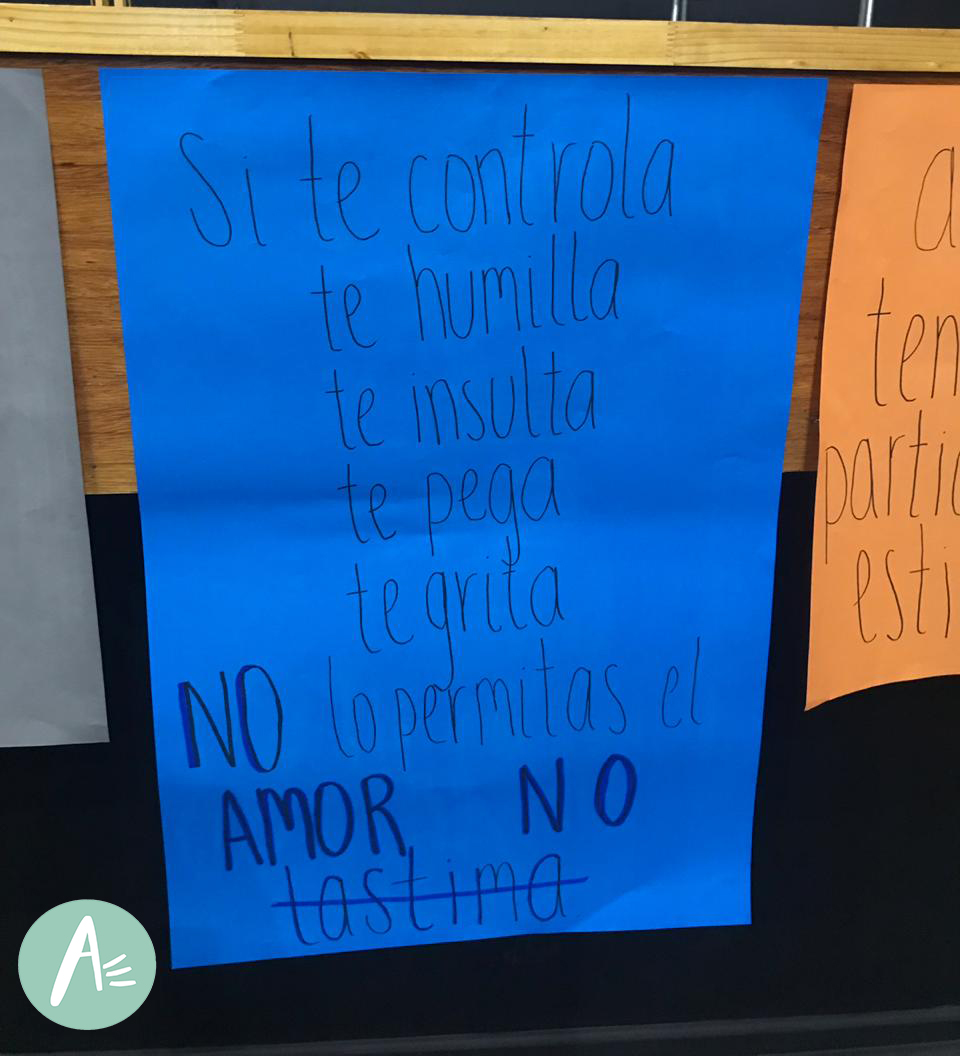 Si te controla
te humilla
te insulta
te pega
te grita
NO lo permitas el
AMOR NO
lastima
a
ten
partic
esti
A